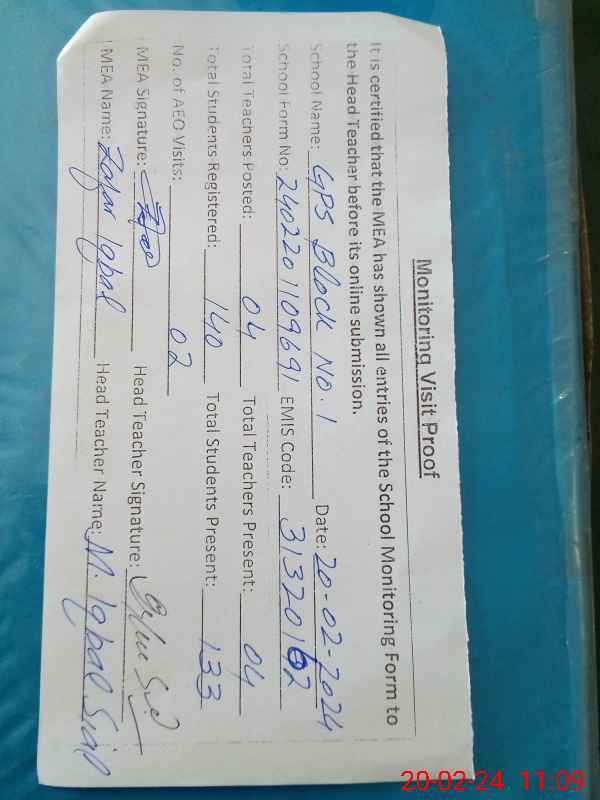 Monitoring Visit Proof
It is certified that the MEA has shown all entries of the School Monitoring Form to
the Head Teacher before its online submission.
School Name: GPS Block NO.1 Date: 20-02-2024
School Form No: 2402201109691 EMIS Code: 31320102
Total Teachers Posted: 04 Total Teachers Present: 04
Total Students Registered: 140 Total Students Present: 133
No. of AEO Visits: 02
MEA Signature: Head Teacher Signature:
MEA Name: Zafar Iqbal Head Teacher Name: M. Iqbal Sial
20-02-24 11:09